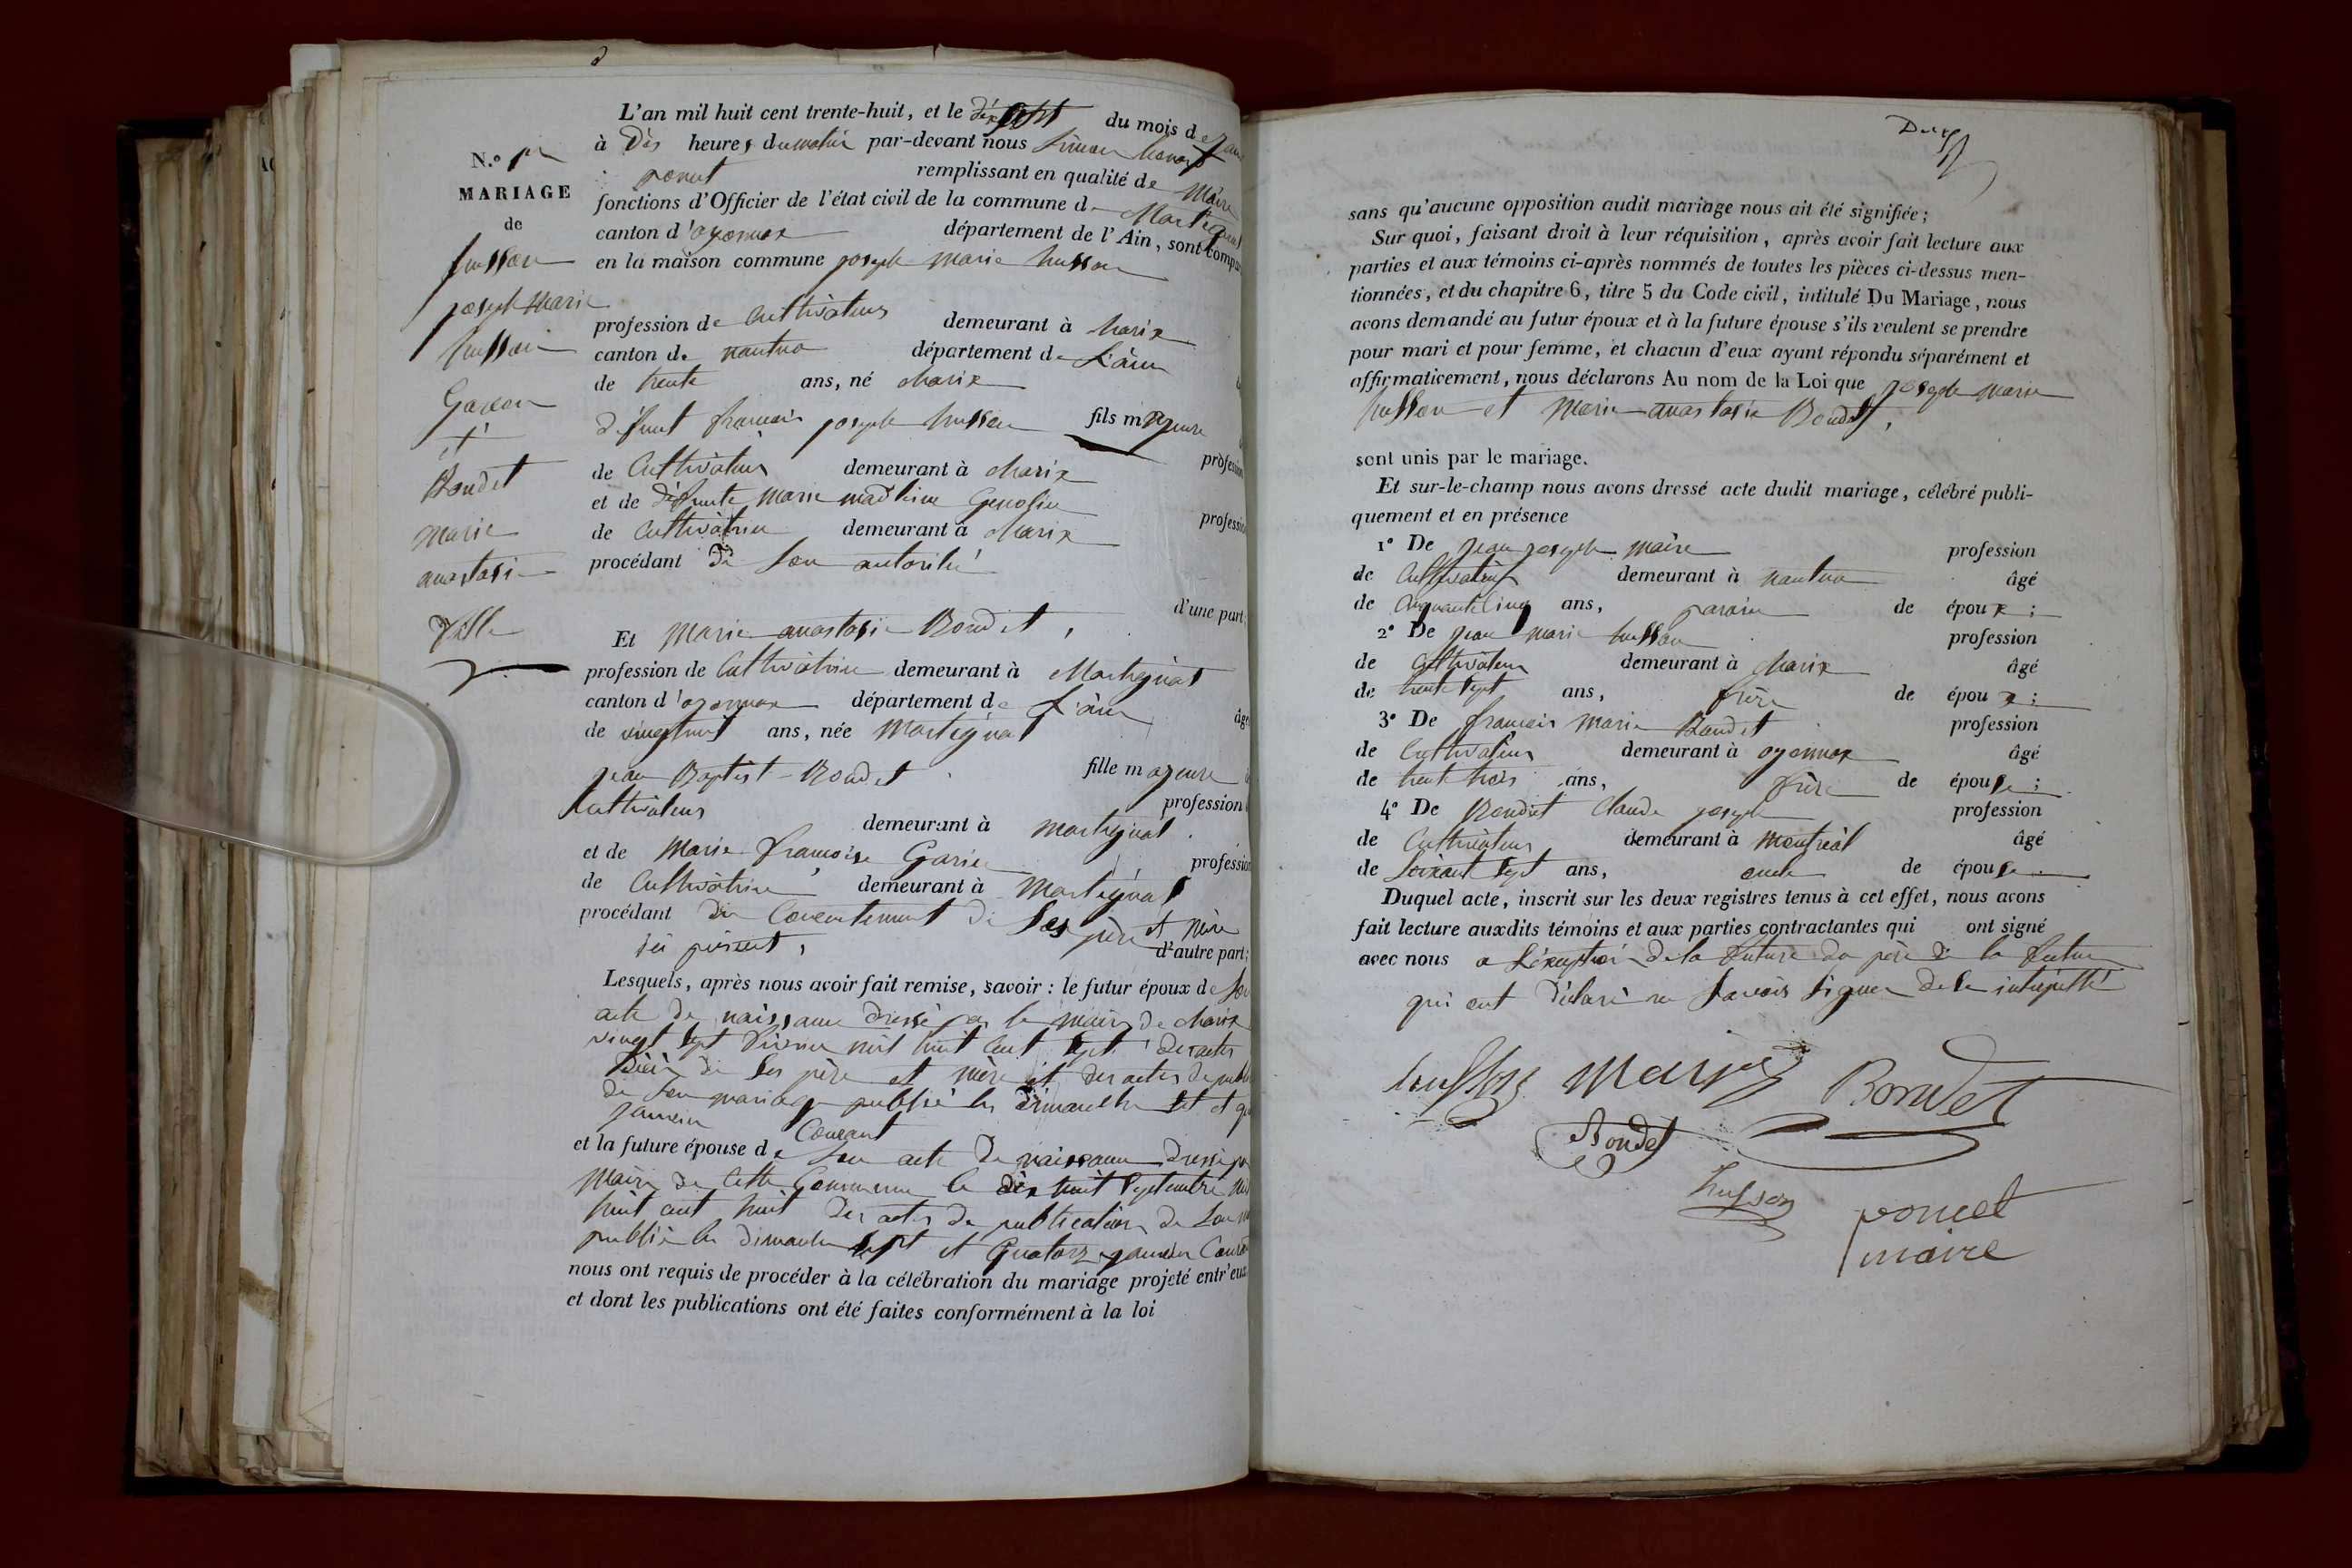 L'an mil huit cent trente-huit, et le dix sept du mois de
à Dix heures du matin par-devant nous Simon
N.º 1er
poncet remplissant en qualité de Maire
MARIAGE
fonctions d'Officier de l'état civil de la commune d Martignat
de
canton d'oyonnax département de l'Ain, sont
husson
en la maison commune joseph marie husson
joseph Marie
profession de Cultivateur demeurant à charix
husson
canton de nantua département de L'ain
de trente ans, né charix
Garçon
défunt françois joseph husson fils majeure
et
profession
Bondet
de Cultivateur demeurant à charix
et de défunte Marie madleine
profession
Marie
de Cultivatrice demeurant à charix
anastasie
procédant de son autorité
d'une part;
fille
Et Marie anastasie Bondet,
profession de Cultivatrice demeurant à Martignat
canton d'oyonnax département de L'ain
de vingt neuf ans, née Martignat
jean Baptist Bondet fille majeure
profession
Cultivateur demeurant à martignat
et de Marie françoise
profession
de Cultivatrice demeurant à Martignat
procédant du Consentement de ses père et mère
ici présent, d'autre part;
Lesquels, après nous avoir fait remise, savoir: le futur époux de son
acte de naissance dressé par le maire de charix
vingt sept mil huit cent sept des actes
décès de ses père et mère et des actes de
de son mariage publié les dimanche sept et
janvier Courant
et la future épouse de son acte de naissance dressé
maire de cette Commune le dix huit Septembre mil
huit cent huit des actes de publication de son
publié les dimanche sept et Quatorze janvier
nous ont requis de procéder à la célébration du mariage projeté entr'eux
et dont les publications ont été faites conformément à la loi
sans qu'aucune opposition audit mariage nous ait été signifiée;
Sur quoi, faisant droit à leur réquisition, après avoir fait lecture aux
parties et aux témoins ci-après nommés de toutes les pièces ci-dessus men-
tionnées, et du chapitre 6, titre 5 du Code civil, intitulé Du Mariage, nous
avons demandé au futur époux et à la future épouse s'ils veulent se prendre
pour mari et pour femme, et chacun d'eux ayant répondu séparément et
affirmativement, nous déclarons Au nom de la Loi que joseph marie
husson et Marie anastasie Bondet,
sont unis par le mariage.
Et sur-le-champ nous avons dressé acte dudit mariage, célébré publi-
quement et en présence
1º De jean joseph maire profession
de Cultivateur demeurant à nantua âgé
de Cinquante Cinq ans, parain de époux;
2º De jean marie husson profession
de Cultivateur demeurant à charix âgé
de trente sept ans, frère de époux;
3º De françois marie Bondet profession
de Cultivateur demeurant à oyonnax âgé
de trente trois ans, frère de épouse;
4º De Bondet claude joseph profession
de Cultivateur demeurant à Montréal âgé
de soixante sept ans, oncle de épouse
Duquel acte, inscrit sur les deux registres tenus à cet effet, nous avons
fait lecture auxdits témoins et aux parties contractantes qui ont signé
avec nous a L'exception de la future du père de la future
qui ont déclaré ne savoir signer de ce
husson Maire Bondet
Bondet
husson
poncet
maire